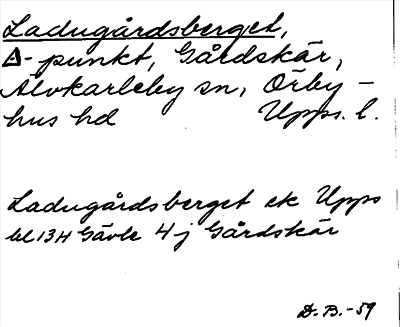 Ladugårdsberget,
△-punkt, Gårdskär,
Älvkarleby sn, Örby-
hus hd Upps. l.
Ladugårdsberget ek Upps
bl 13H Gävle 4j Gårdskär
D. B. -59